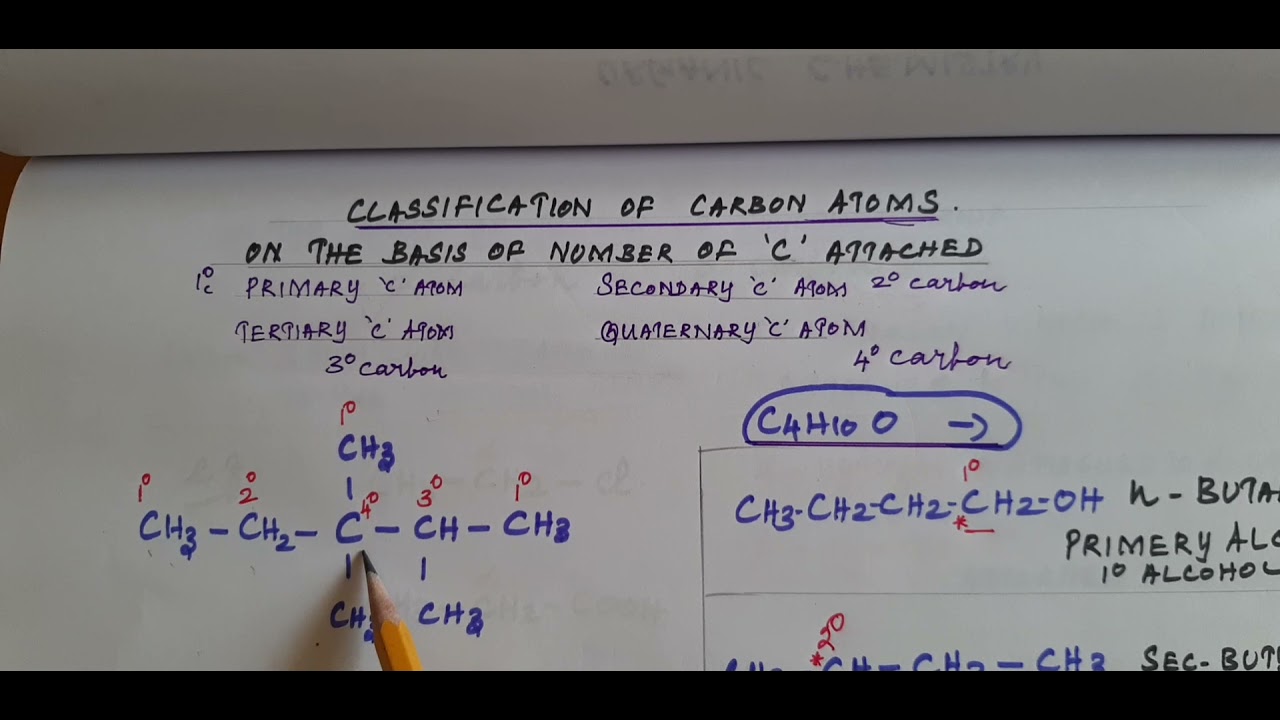 ORGANIC CHEMISTRY
CLASSIFICATION OF CARBON ATOMS.
ON THE BASIS OF NUMBER OF 'C' ATTACHED
1° C PRIMARY 'C' ATOM SECONDARY 'C' ATOM 2° carbon
TERTIARY 'C' ATOM QUATERNARY 'C' ATOM
3° carbon 4° carbon
C4H10O →
1°
CH3
1° 2° 4° 3° 1°
CH3 – CH2 – C – CH – CH3
CH3 CH3
1°
CH3-CH2-CH2-*CH2-OH n-BUTA
PRIMERY ALC
1° ALCOHOL
2°
*CH – CH2 – CH3 SEC-BUT